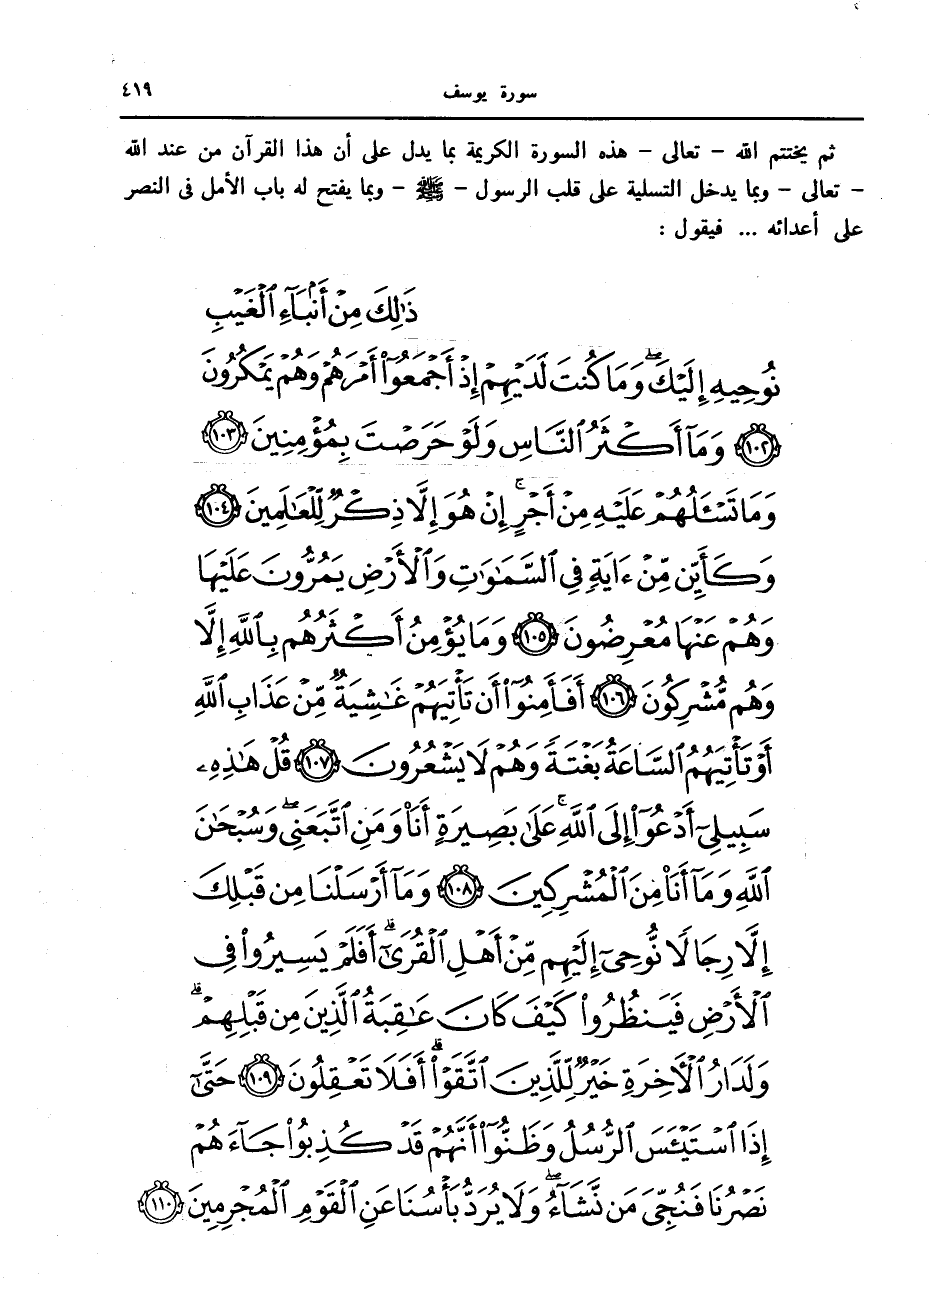 سورة يوسف ٤١٩
ثم يختتم الله - تعالى - هذه السورة الكريمة بما يدل على أن هذا القرآن من عند الله
- تعالى - وبما يدخل التسلية على قلب الرسول - ﷺ - وبما يفتح له باب الأمل فى النصر
على أعدائه ... فيقول :
ذَٰلِكَ مِنْ أَنۢبَآءِ ٱلْغَيْبِ
نُوحِيهِ إِلَيْكَ ۖ وَمَا كُنتَ لَدَيْهِمْ إِذْ أَجْمَعُوٓا۟ أَمْرَهُمْ وَهُمْ يَمْكُرُونَ
﴿١٠٢﴾ وَمَآ أَكْثَرُ ٱلنَّاسِ وَلَوْ حَرَصْتَ بِمُؤْمِنِينَ ﴿١٠٣﴾
وَمَا تَسْـَٔلُهُمْ عَلَيْهِ مِنْ أَجْرٍ ۚ إِنْ هُوَ إِلَّا ذِكْرٌ لِّلْعَٰلَمِينَ ﴿١٠٤﴾
وَكَأَيِّن مِّنْ ءَايَةٍ فِى ٱلسَّمَٰوَٰتِ وَٱلْأَرْضِ يَمُرُّونَ عَلَيْهَا
وَهُمْ عَنْهَا مُعْرِضُونَ ﴿١٠٥﴾ وَمَا يُؤْمِنُ أَكْثَرُهُم بِٱللَّهِ إِلَّا
وَهُم مُّشْرِكُونَ ﴿١٠٦﴾ أَفَأَمِنُوٓا۟ أَن تَأْتِيَهُمْ غَٰشِيَةٌ مِّنْ عَذَابِ ٱللَّهِ
أَوْ تَأْتِيَهُمُ ٱلسَّاعَةُ بَغْتَةً وَهُمْ لَا يَشْعُرُونَ ﴿١٠٧﴾ قُلْ هَٰذِهِۦ
سَبِيلِىٓ أَدْعُوٓا۟ إِلَى ٱللَّهِ ۚ عَلَىٰ بَصِيرَةٍ أَنَا۠ وَمَنِ ٱتَّبَعَنِى ۖ وَسُبْحَٰنَ
ٱللَّهِ وَمَآ أَنَا۠ مِنَ ٱلْمُشْرِكِينَ ﴿١٠٨﴾ وَمَآ أَرْسَلْنَا مِن قَبْلِكَ
إِلَّا رِجَالًا نُّوحِىٓ إِلَيْهِم مِّنْ أَهْلِ ٱلْقُرَىٰٓ ۗ أَفَلَمْ يَسِيرُوا۟ فِى
ٱلْأَرْضِ فَيَنظُرُوا۟ كَيْفَ كَانَ عَٰقِبَةُ ٱلَّذِينَ مِن قَبْلِهِمْ ۗ
وَلَدَارُ ٱلْءَاخِرَةِ خَيْرٌ لِّلَّذِينَ ٱتَّقَوْا۟ ۗ أَفَلَا تَعْقِلُونَ ﴿١٠٩﴾ حَتَّىٰٓ
إِذَا ٱسْتَيْـَٔسَ ٱلرُّسُلُ وَظَنُّوٓا۟ أَنَّهُمْ قَدْ كُذِبُوا۟ جَآءَهُمْ
نَصْرُنَا فَنُجِّىَ مَن نَّشَآءُ ۖ وَلَا يُرَدُّ بَأْسُنَا عَنِ ٱلْقَوْمِ ٱلْمُجْرِمِينَ ﴿١١٠﴾